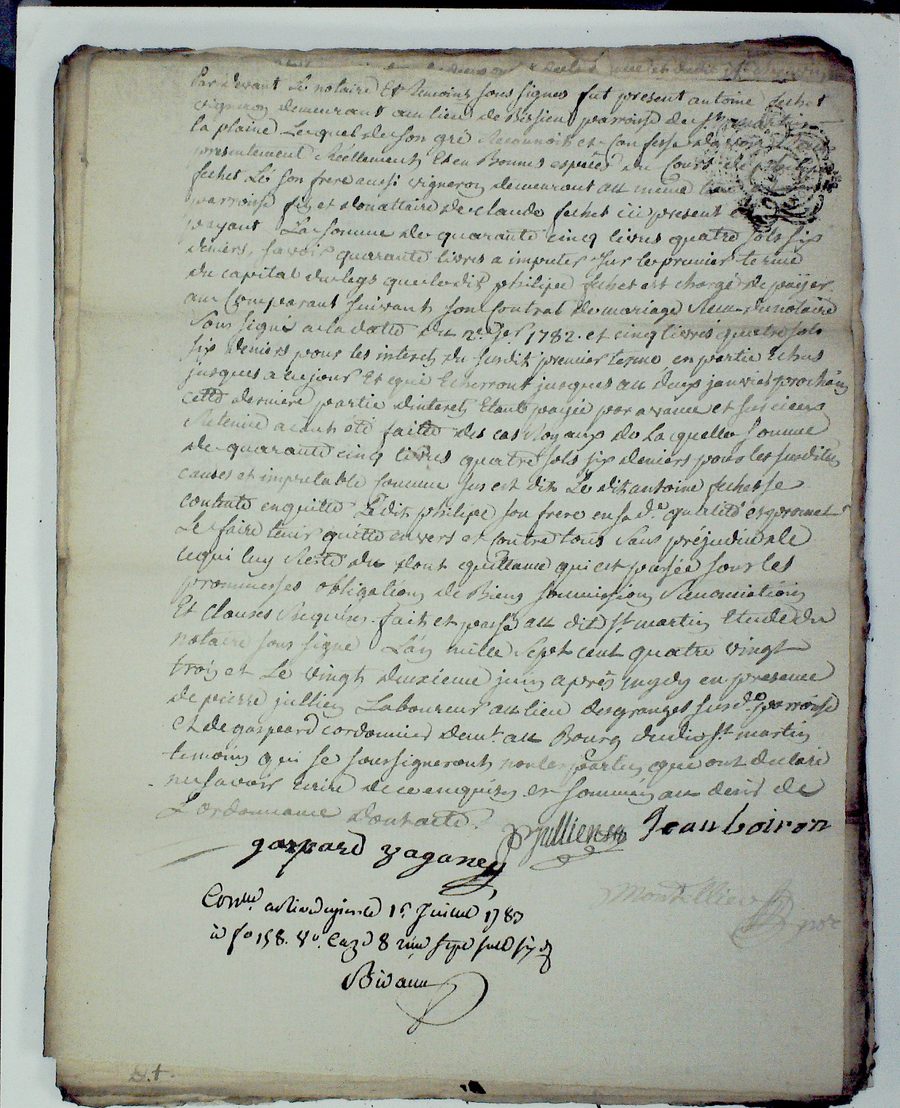 Par devant Le notaire Et temoins sous signes fut present antoine fechet
vigneron demeurant au lieu de Bissieu parroisse de st martin
la plaine Lequel de son gré Reconnoit et Confesse
presentement Réellement Et en Bonnes especes du Cours de
fechet Lé son frere aussi vigneron demeurant au meme lieu
parroisse fils et donattaire de claude fechet ici present
payant La somme de quarante cinq livres quatre sols six
deniers, savoir quarante livres a imputer sur le premier terme
du capital du legs que ledit philipe fechet est chargé de payer
au Comparant suivant son Contrat de mariage Reçu du notaire
sous signé a la datte du 1782. et cinq livres quatre sols
six deniers pour les interets du susdit premier terme en partie Echus
jusques a ce jour Et qui Echerront jusques au deux janvier prochain
cette derniere partie d'interets Etant payée par avance et sur iceux
Retenue ayant été faitte des cas Royaux de Laquelle somme
de quarante cinq livres quatre sols six deniers pour les susdittes
causes et imputable comme sus est dit Le dit antoine fechet se
contente en quitte Ledit philipe son frere en sa de qualité et promet
Le faire tenir quitte envers et contre tous sans préjudice de
ce qui luy Reste du dont quittance qui est passée sous les
promesses obligations de Biens soumissions Renonciations
Et clauses Requises. fait et passé au dit st martin Etude du
notaire sous signé L'an mille sept cent quatre vingt
trois et Le vingt deuxieme juin après mydy en presence
de pierre jullien Laboureur au lieu des granges susd.e parroisse
et de gaspeard cordonnier demt. au Bourg dudit st. martin
temoins qui se soussigneront non les parties que ont declaré
ne savoir Ecrire de ce enquises et sommés au desir de
L'ordonnance dont acte.
pjullien Jean loiron
gaspard zaganey
Montellier nore
Conllé a Rivedegier le 1r. Juillet 1783
a fo 158. Vo. Caze 8 six d
Bidaun
D.t.